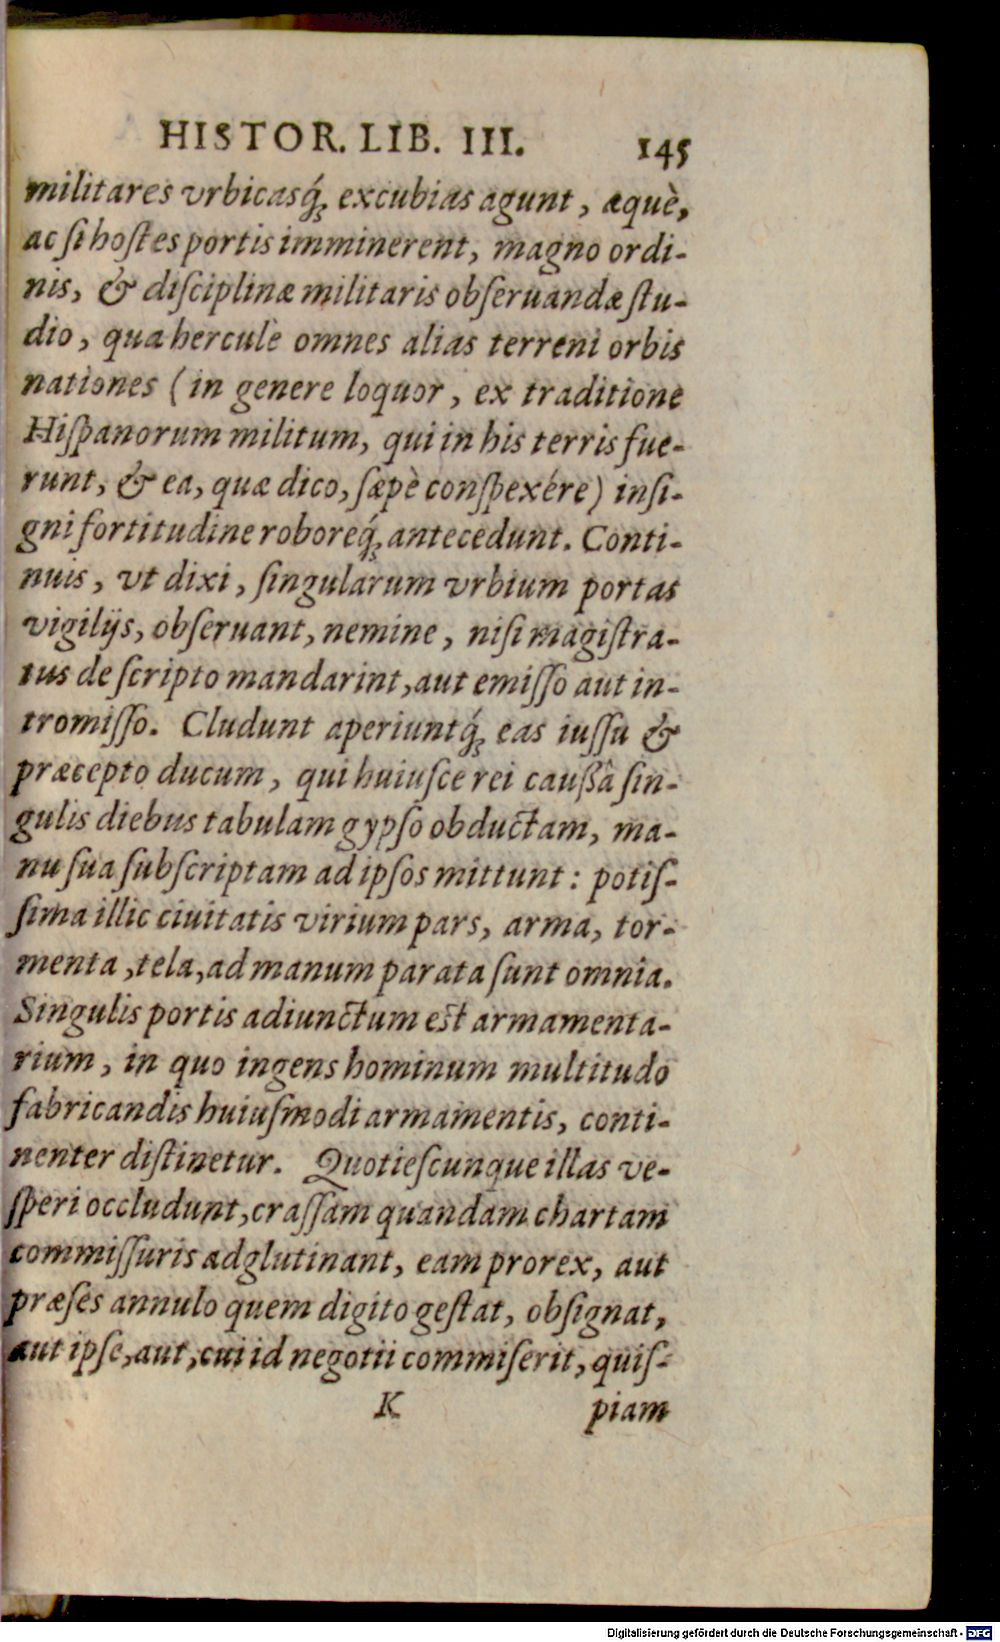 HISTOR. LIB. III. 145
militares vrbicasq́ꝫ excubias agunt, æquè,
ac ſi hoſtes portis imminerent, magno ordi-
nis, & diſciplinæ militaris obſeruandæ ſtu-
dio, qua herculè omnes alias terreni orbis
nationes (in genere loquor, ex traditione
Hiſpanorum militum, qui in his terris fue-
runt, & ea, quæ dico, ſæpè conſpexére) inſi-
gni fortitudine roboreq́ꝫ antecedunt. Conti-
nuis, vt dixi, ſingularum vrbium portas
vigiliįs, obſeruant, nemine, niſi magiſtra-
tus de ſcripto mandarint, aut emiſſo aut in-
tromiſſo. Cludunt aperiuntq́ꝫ eas iuſſu &
præcepto ducum, qui huiuſce rei caußâ ſin-
gulis diebus tabulam gypſo obductam, ma-
nu ſua ſubſcriptam ad ipſos mittunt: potiſ-
ſima illic ciuitatis virium pars, arma, tor-
menta, tela, ad manum parata ſunt omnia.
Singulis portis adiunctum eſt armamenta-
rium, in quo ingens hominum multitudo
fabricandis huiuſmodi armamentis, conti-
nenter diſtinetur. Quotieſcunque illas ve-
ſperi occludunt, craſſam quandam chartam
commiſſuris adglutinant, eam prorex, aut
præſes annulo quem digito geſtat, obſignat,
aut ipſe, aut, cui id negotii commiſerit, quiſ-
K piam
Digitalisierung gefördert durch die Deutsche Forschungsgemeinschaft - DFG